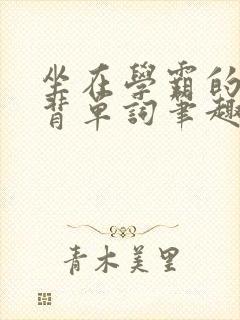 坐在學霸的
背單詞筆趣
青木美里